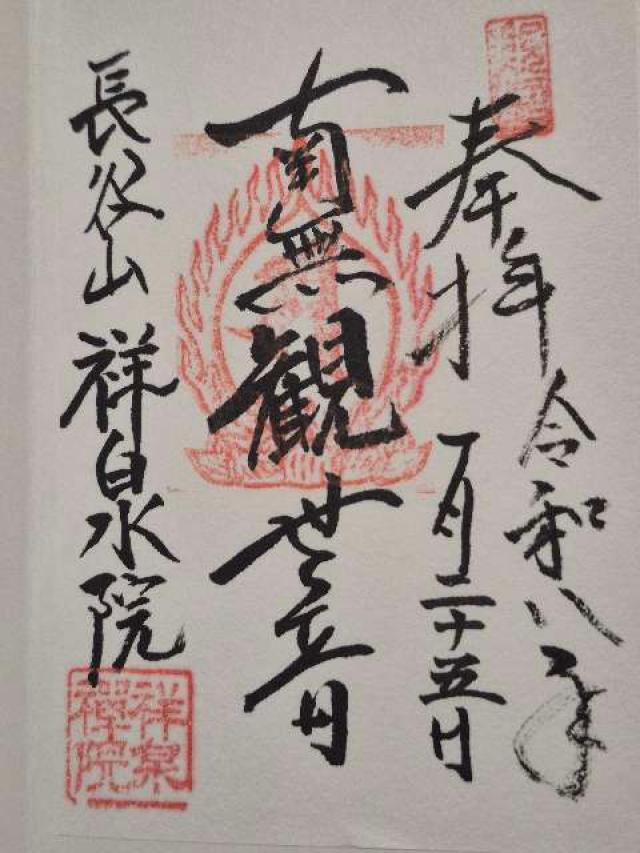 奉拝
令和八年
一月二十五日
南無観世音
長谷山 祥泉院
祥泉禅院